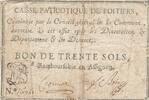 CAISSE PATRIOTIQUE DE POITIERS,
Cautionnée par le Conseil général de la Commune,
autorisée à cet effet par les Directoires de
Département & de District.
BON DE TRENTE SOLS,
Remboursable en Assignats.